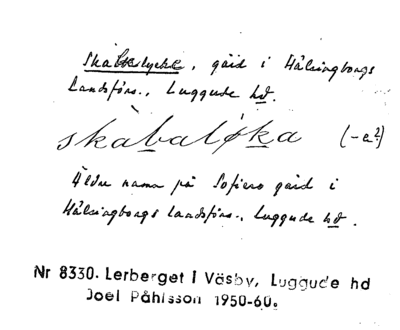 Skabelycke, gård i Hälsingborgs
Landsförs., Luggude hd.
skàbaløka (-a?)
Äldre namn på Sofiero gård i
Hälsingborgs landsförs., Luggude hd.
Nr 8330. Lerberget i Väsby, Luggude hd
Joel Påhlsson 1950-60.